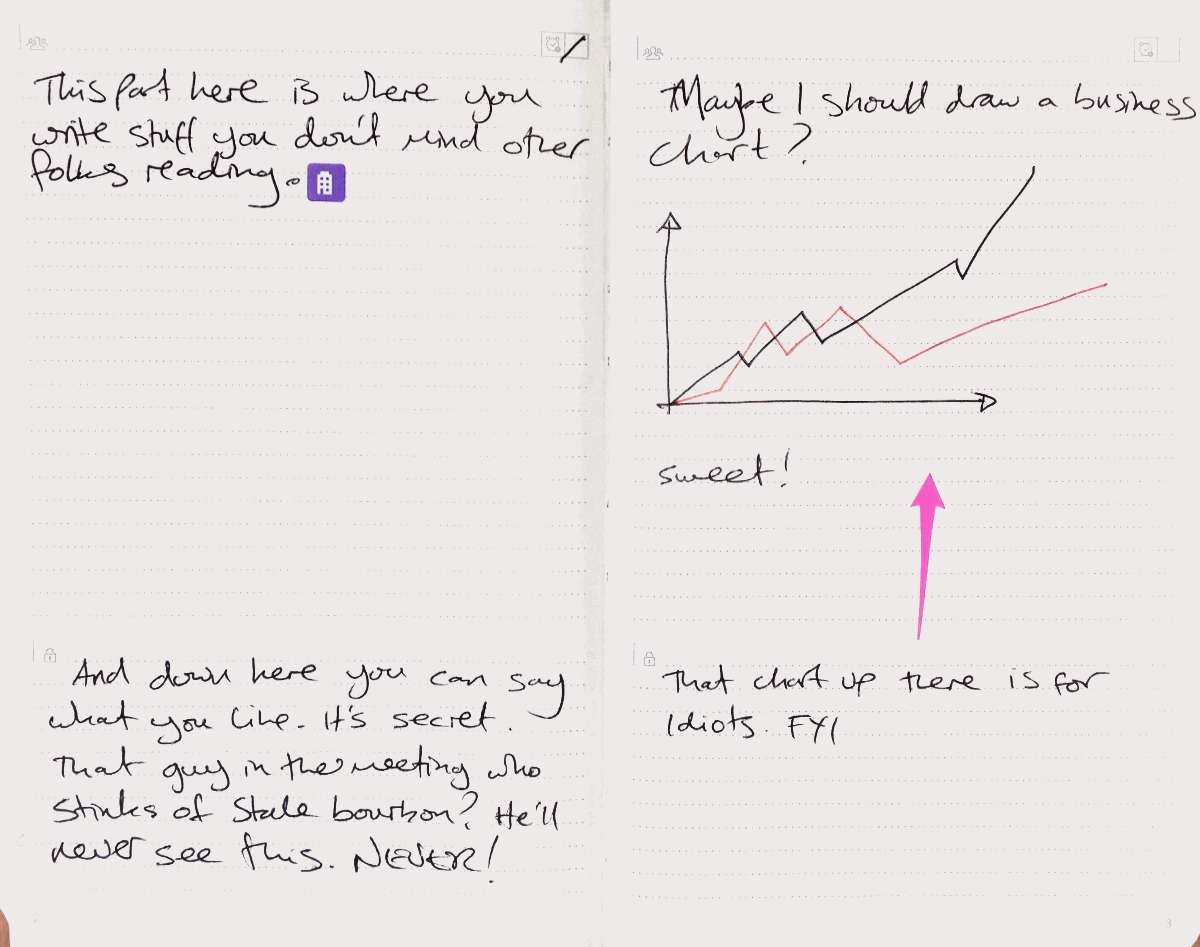 This part here is where you
write stuff you don't mind other
folks reading.
And down here you can say
what you like. It's secret.
That guy in the meeting who
stinks of stale bourbon? He'll
never see this. NEVER!
Maybe I should draw a business
chart?
sweet!
That chart up there is for
Idiots. FYI
3